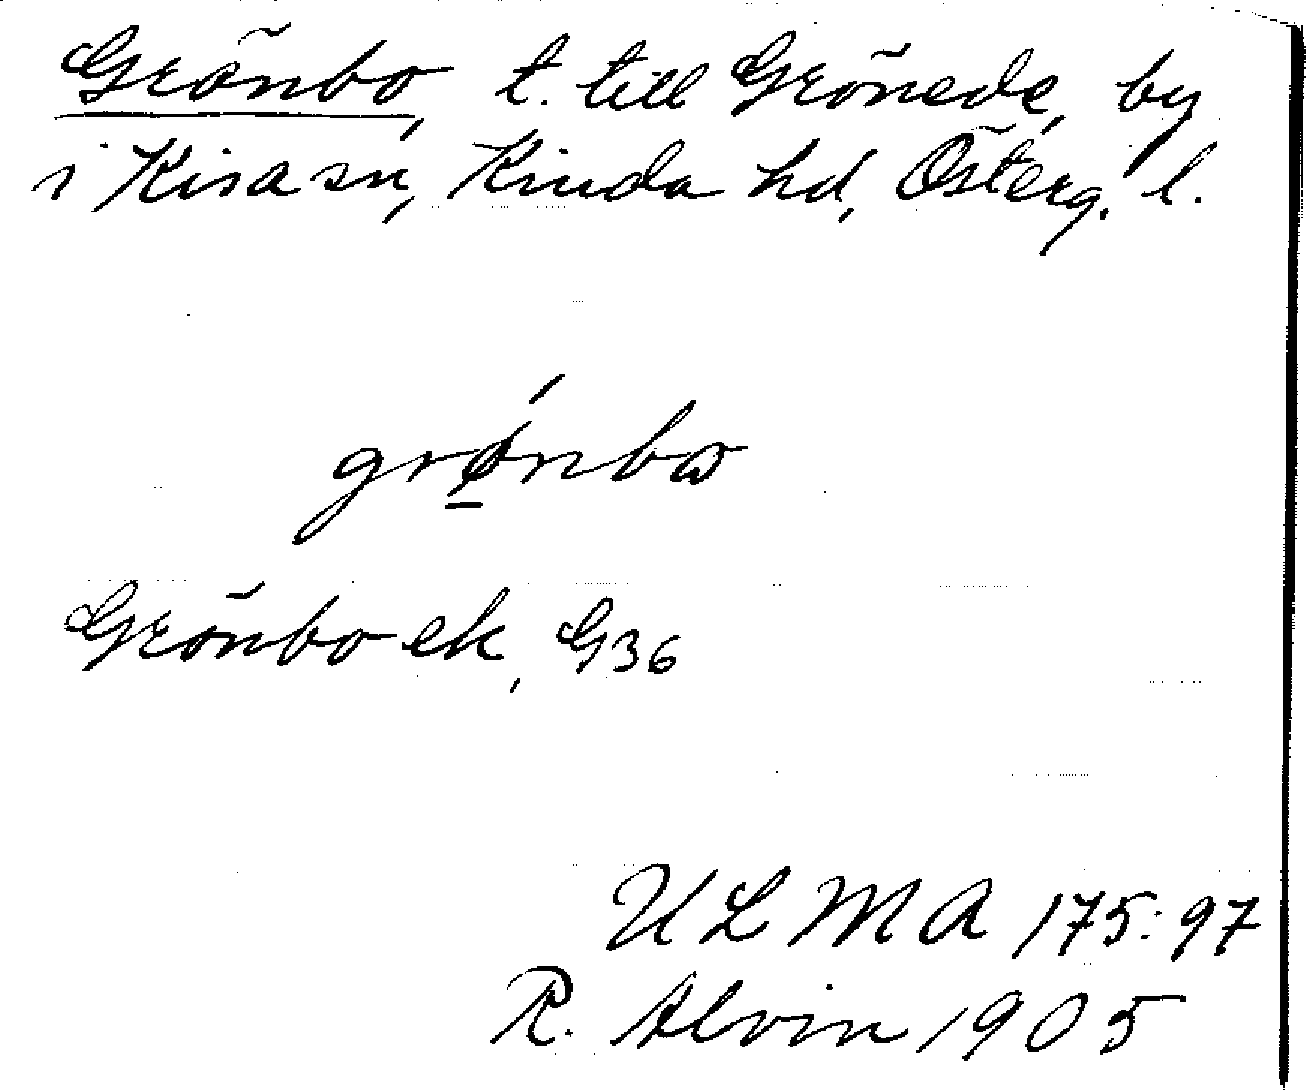 Grönbo, t. till Grönede, by
i Kisa sn, Kinda hd, Österg. l.
grǿ̱nbω
Grönbo ek, G36
ULMA 175:97
R. Alvin 1905